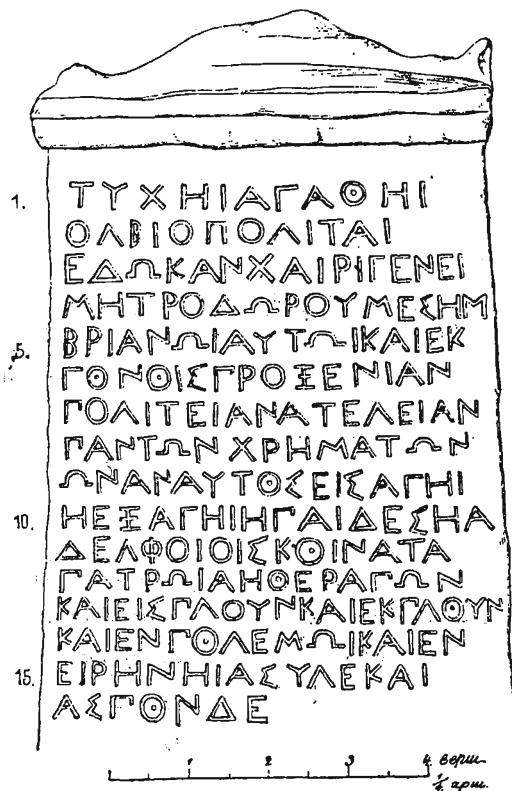 1. ΤΥΧΗΙΑΓΑΘΗΙ
ΟΛΒΙΟΠΟΛΙΤΑΙ
ΕΔΩΚΑΝΧΑΙΡΙΓΕΝΕΙ
ΜΗΤΡΟΔΩΡΟΥΜΕΣΗΜ
5. ΒΡΙΑΝΩΙΑΥΤΩΙΚΑΙΕΚ
ΓΟΝΟΙΣΠΡΟΞΕΝΙΑΝ
ΠΟΛΙΤΕΙΑΝΑΤΕΛΕΙΑΝ
ΠΑΝΤΩΝΧΡΗΜΑΤΩΝ
ΩΝΑΝΑΥΤΟΣΕΙΣΑΓΗΙ
10. ΗΕΞΑΓΗΙΗΠΑΙΔΕΣΗΑ
ΔΕΛΦΟΙΟΙΣΚΟΙΝΑΤΑ
ΠΑΤΡΩΙΑΗΘΕΡΑΠΩΝ
ΚΑΙΕΙΣΠΛΟΥΝΚΑΙΕΚΠΛΟΥΝ
ΚΑΙΕΝΠΟΛΕΜΩΙΚΑΙΕΝ
15. ΕΙΡΗΝΗΙΑΣΥΛΕΚΑΙ
ΑΣΠΟΝΔΕ
1 2 3 4 верш.
1/4 арш.